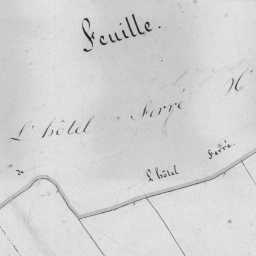 Feuille.
L'hôtel Ferré N
de
L'hôtel Ferré.